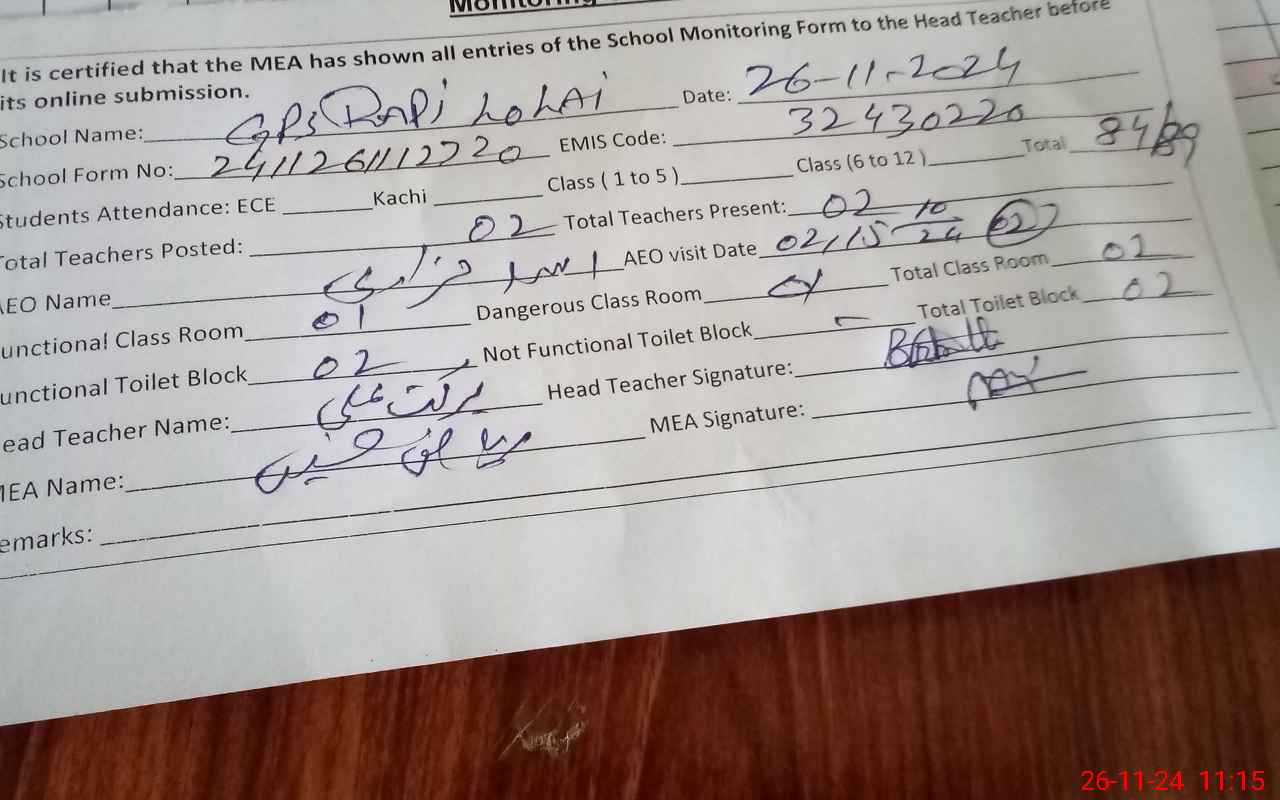 Monitoring
It is certified that the MEA has shown all entries of the School Monitoring Form to the Head Teacher before
its online submission.
School Name: GPS RAPi LohAi Date: 26-11-2024
School Form No: 2411261112720 EMIS Code: 32430220
Students Attendance: ECE Kachi Class ( 1 to 5 ) Class (6 to 12 ) Total 84/89
Total Teachers Posted: 02 Total Teachers Present: 02
AEO Name AEO visit Date 02, 15 10/24 02
unctional Class Room 01 Dangerous Class Room 01 Total Class Room 02
unctional Toilet Block 02 Not Functional Toilet Block - Total Toilet Block 02
ead Teacher Name: برکت علی Head Teacher Signature:
MEA Name: MEA Signature:
emarks:
26-11-24 11:15